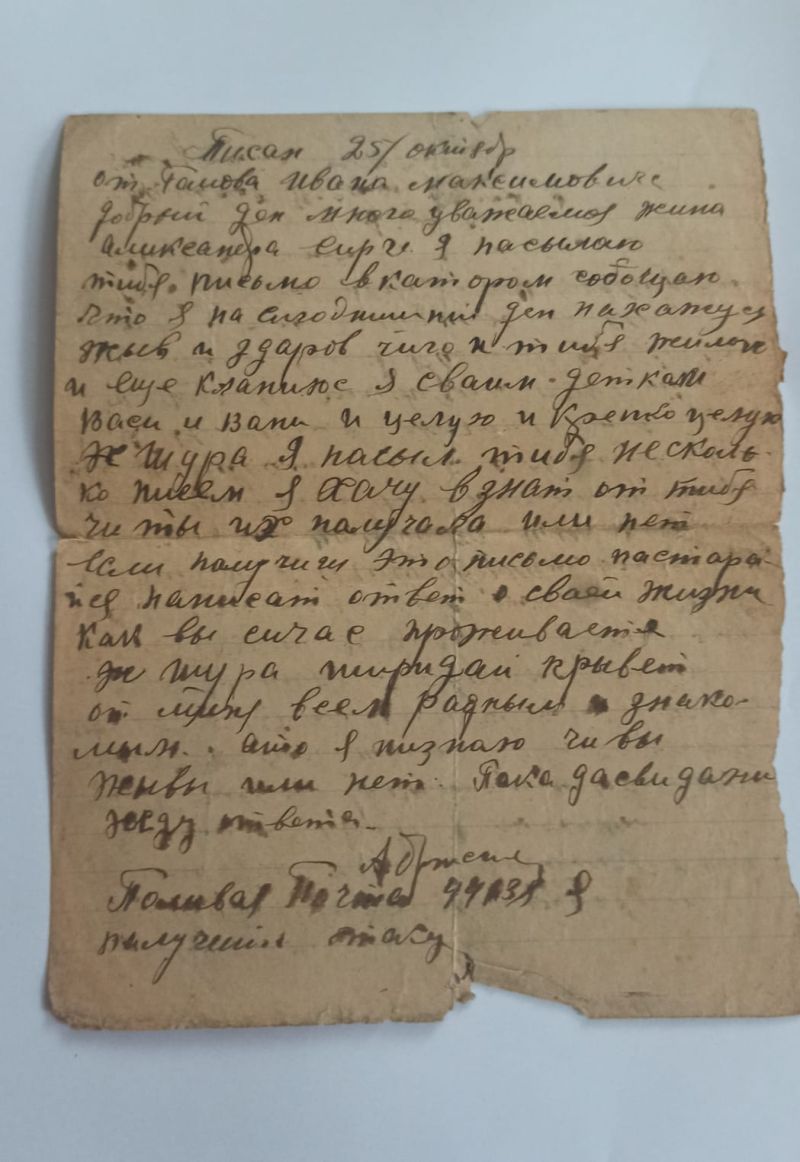 Писан 25/октябр
от Гамова Ивана максимовиче
добрый ден много уважаемоя жина
Аликсандра я пасылаю
тибя письмо вкатором собощаю
что я на сигоднишний ден нахажус
жыв и здаров чиго и тибя жилаю
и еще кланиюс я сваим деткам
Васи и Вани и целую и крепко целую
Шура я пасыл тибя несколь-
ко писем я хачу взнат от тибя
чи ты их палучала или нет
Если палучиш это письмо пастара-
йся написат ответ о сваей жизни
как вы сичас проживаетя
Шура пиридай крывет
от миня всем радным знако-
мым. ато я низнаю чи вы
жывы или нет. Пока дасвидани
жду ответа.
Поливая Почта я